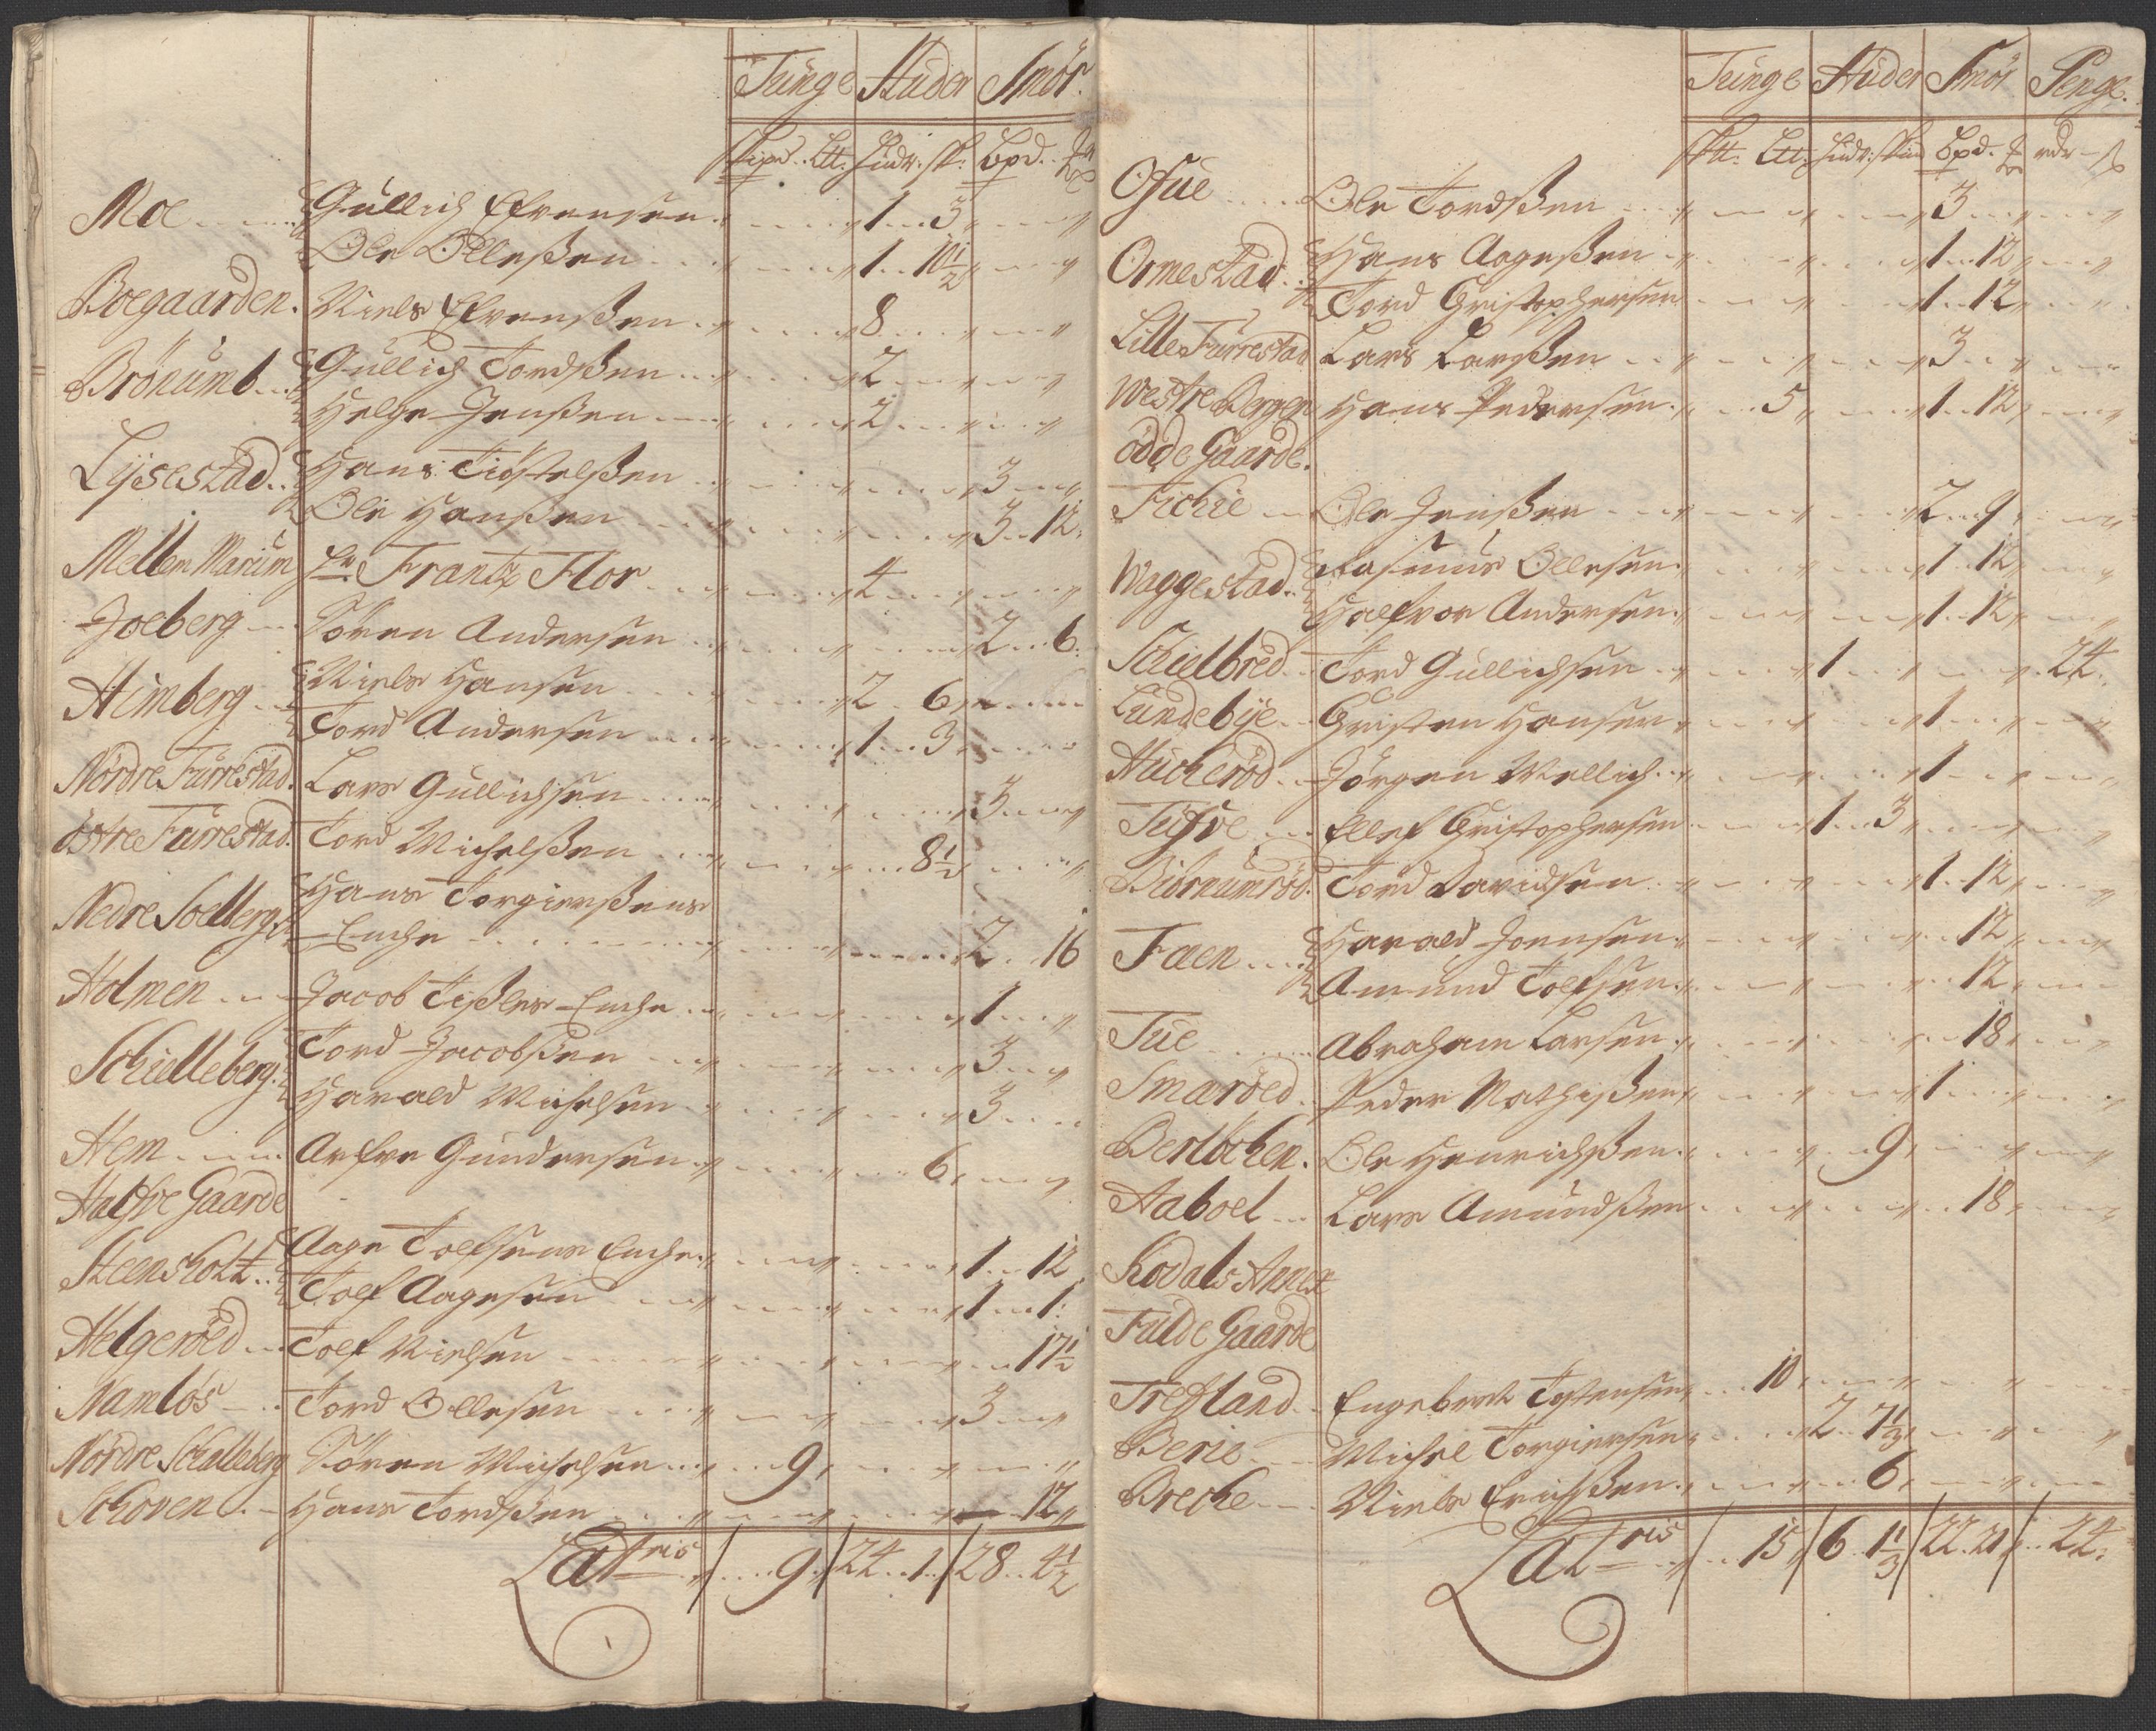 Tünge Hüder Smör.
Skipd. Ltt. Hudr. sk. Bpd.
Moe Güllich Efvensen 1 3
Ole Olleßen 1 10½
Boegaarden. Niels Efvenßen 8
Brönumb Güllich Tordßen 2
Helge Jenßen 2
Lysestad Hans Tiöstelßen 3
Ole Hanßen 3 12
Mellem Marium Hr. Frantz Flor 4
Joeberg Sören Andersen 2 6
Himberg Niels Hansen 2 6
Tord Andersen 1 3
Nordre Fürrestad. Lars Güllichsen 3
östre Fürrestad. Tord Michelßen 8½
Nedre Soelberg Hans Torgierßens
Enche 2 16
Holmen Jacob Tißles Enche 1
Schielleberg. Tord Jacobßen 3
Harald Michelsen 3
Hem Arfve Gündersen 6
Halfve Gaarde
Steensholt Aage Tolfsens Enche 1 12
Tolf Aagesen 1 1
Helgeröed Tolf Nielsen 17½
Namlös Tord Ollesen 3
Nordre Schalleberg Sören Michelsen 9
Schoven Hans Tordßen 12
Latris 9 24 1 28 4½
Tünge Hüder Smör Penge.
skp. Ltt. Hudr. skin Bpd. rdr
Ofue Ole Tordßen 3
Ormestad Hans Aageßen 1 12
Tord Cristophersen 1 12
Lille Fürrestad Lars Larßen 3
Westre Bergen Hans Pedersen 5 1 12
ödde Gaarde.
Fichie Ole Jenßen 2 9
Waggestad Rasmus Ollesen 1 12
Halfvor Andersen 1 12
Schielbred Tord Güllichsen 1 24
Lundebye Cristen Hansen 1
Hucheröd Jörgen Wellich 1
Tufve Ellef Cristophersen 1 3
Biörnumröd. Tord Davidsen 1 12
Faen Harald Joensen 12
Amund Tolfsen 12
Tüe Abraham Larsen 18
Smaröed Peder Mathißen 1
Berlöchen. Ole Henrichßen 9
Aaboel Lars Amundßen 18
Kodals Annex
Fulde Gaarde
Trefland Engebret Tostensen 10
Berie Michel Torgiersen 2 7⅓
Breche Niels Erichßen 6
Latris 15 6 1⅓ 22 21 24